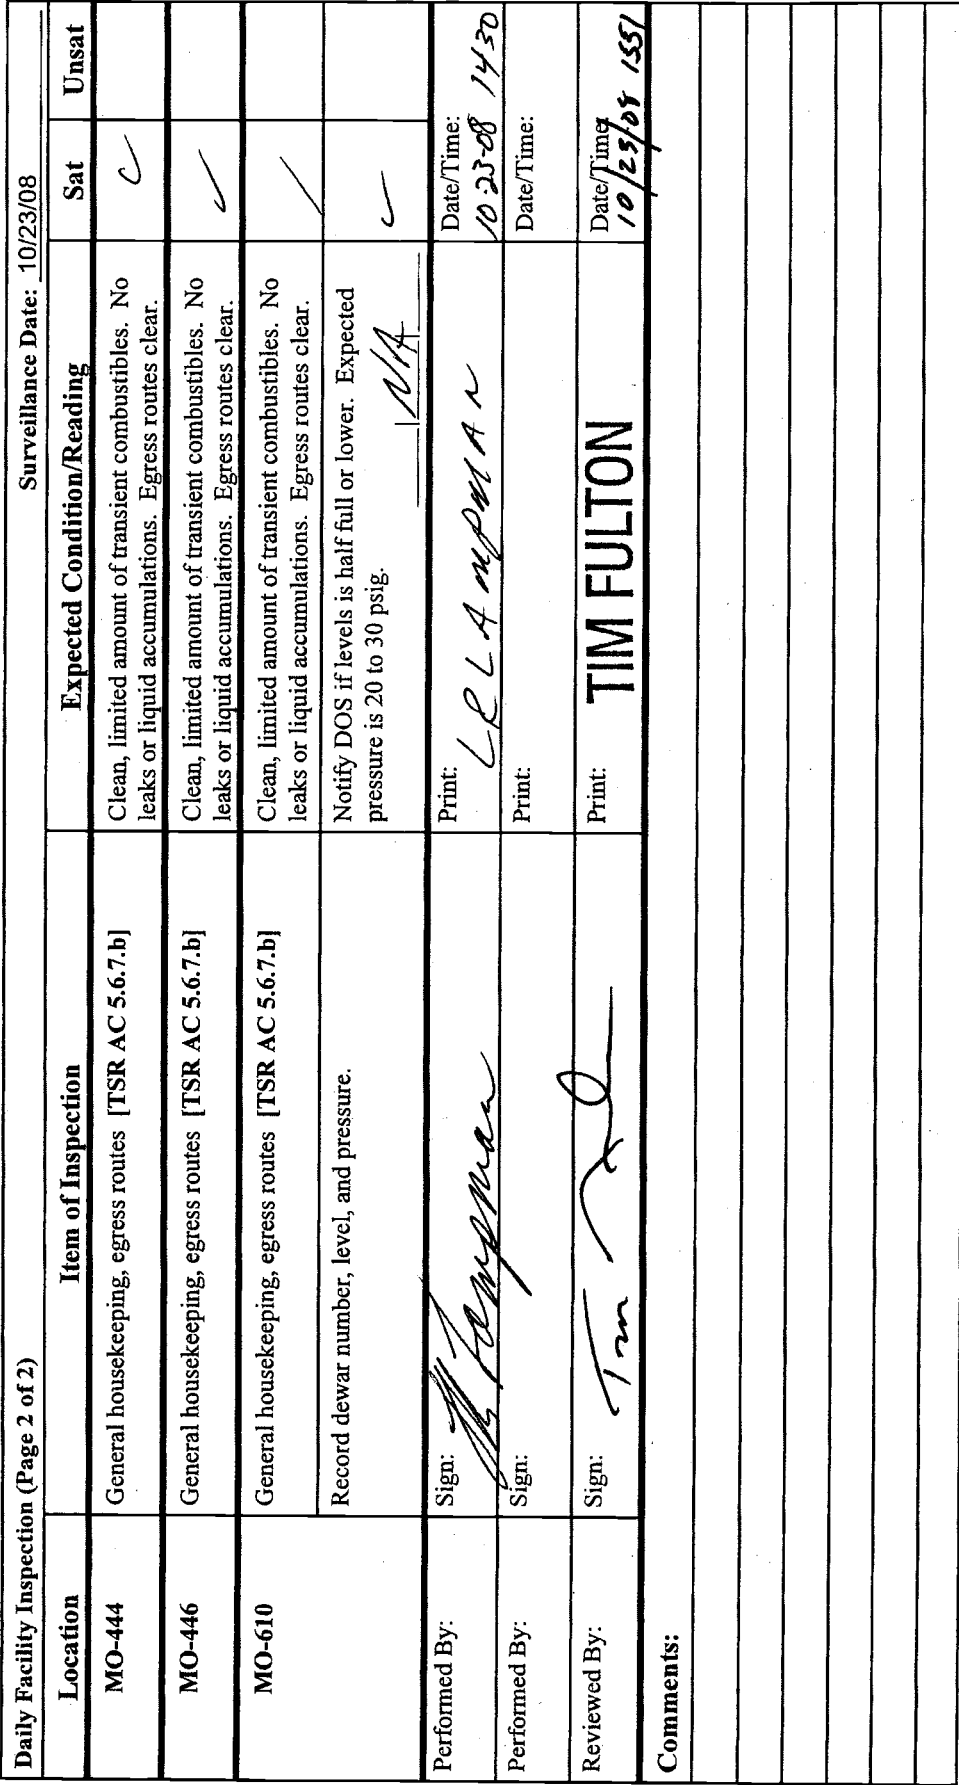 Daily Facility Inspection (Page 2 of 2) Surveillance Date: 10/23/08
Location Item of Inspection Expected Condition/Reading Sat Unsat
MO-444 General housekeeping, egress routes [TSR AC 5.6.7.b] Clean, limited amount of transient combustibles. No
leaks or liquid accumulations. Egress routes clear.
MO-446 General housekeeping, egress routes [TSR AC 5.6.7.b] Clean, limited amount of transient combustibles. No
leaks or liquid accumulations. Egress routes clear.
MO-610 General housekeeping, egress routes [TSR AC 5.6.7.b] Clean, limited amount of transient combustibles. No
leaks or liquid accumulations. Egress routes clear.
Record dewar number, level, and pressure. Notify DOS if levels is half full or lower. Expected
pressure is 20 to 30 psig. N/A
Performed By: Sign: Lampman Print: LR LAMPMAN Date/Time:
10-23-08 1430
Performed By: Sign: Print: Date/Time:
Reviewed By: Sign: Tim Print: TIM FULTON Date/Time:
10/23/08 1551
Comments: